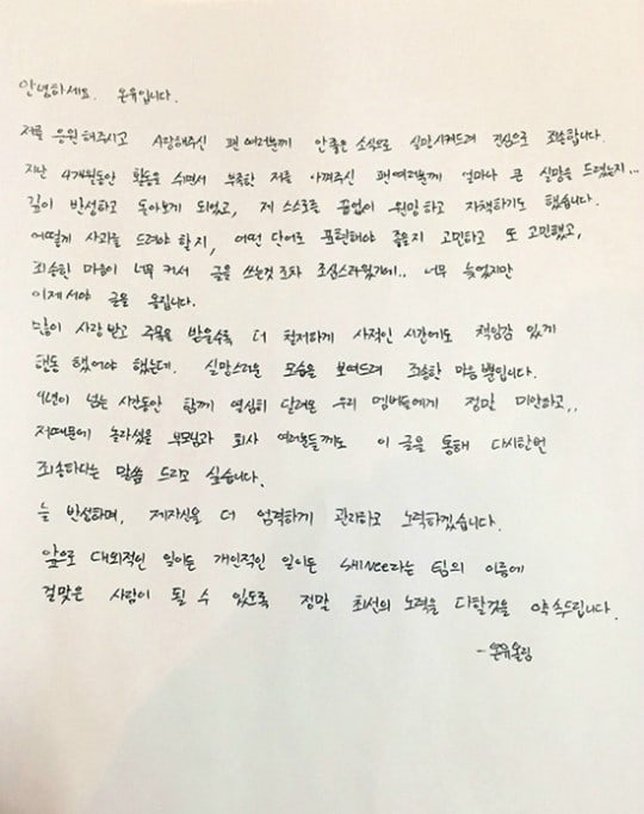 안녕하세요. 온유입니다.
저를 응원해주시고 사랑해주신 팬 여러분께 안좋은 소식으로 실망시켜드려 진심으로 죄송합니다.
지난 4개월동안 활동을 쉬면서 부족한 저를 아껴주신 팬여러분께 얼마나 큰 실망을 드렸는지...
깊이 반성하고 돌아보게 되었고, 제 스스로를 끝없이 원망하고 자책하기도 했습니다.
어떻게 사과를 드려야 할지, 어떤 단어로 표현해야 좋을지 고민하고 또 고민했고,
죄송한 마음이 너무 커서 글을 쓰는것 조차 조심스러웠기에.. 너무 늦었지만
이제서야 글을 옮깁니다.
많이 사랑받고 주목을 받을수록 더 철저하게 사적인 시간에도 책임감 있게
행동 했어야 했는데. 실망스러운 모습을 보여드려 죄송한 마음뿐입니다.
9년이 넘는 시간동안 함께 열심히 달려온 우리 멤버들에게 정말 미안하고,,
저때문에 놀라셨을 부모님과 회사 여러분들께도 이 글을 통해 다시한번
죄송하다는 말씀 드리고 싶습니다.
늘 반성하며, 제자신을 더 엄격하게 관리하고 노력하겠습니다.
앞으로 대외적인 일이든 개인적인 일이든 SHINee라는 팀의 이름에
걸맞은 사람이 될 수 있도록 정말 최선의 노력을 다할것을 약속드립니다.
-온유올림